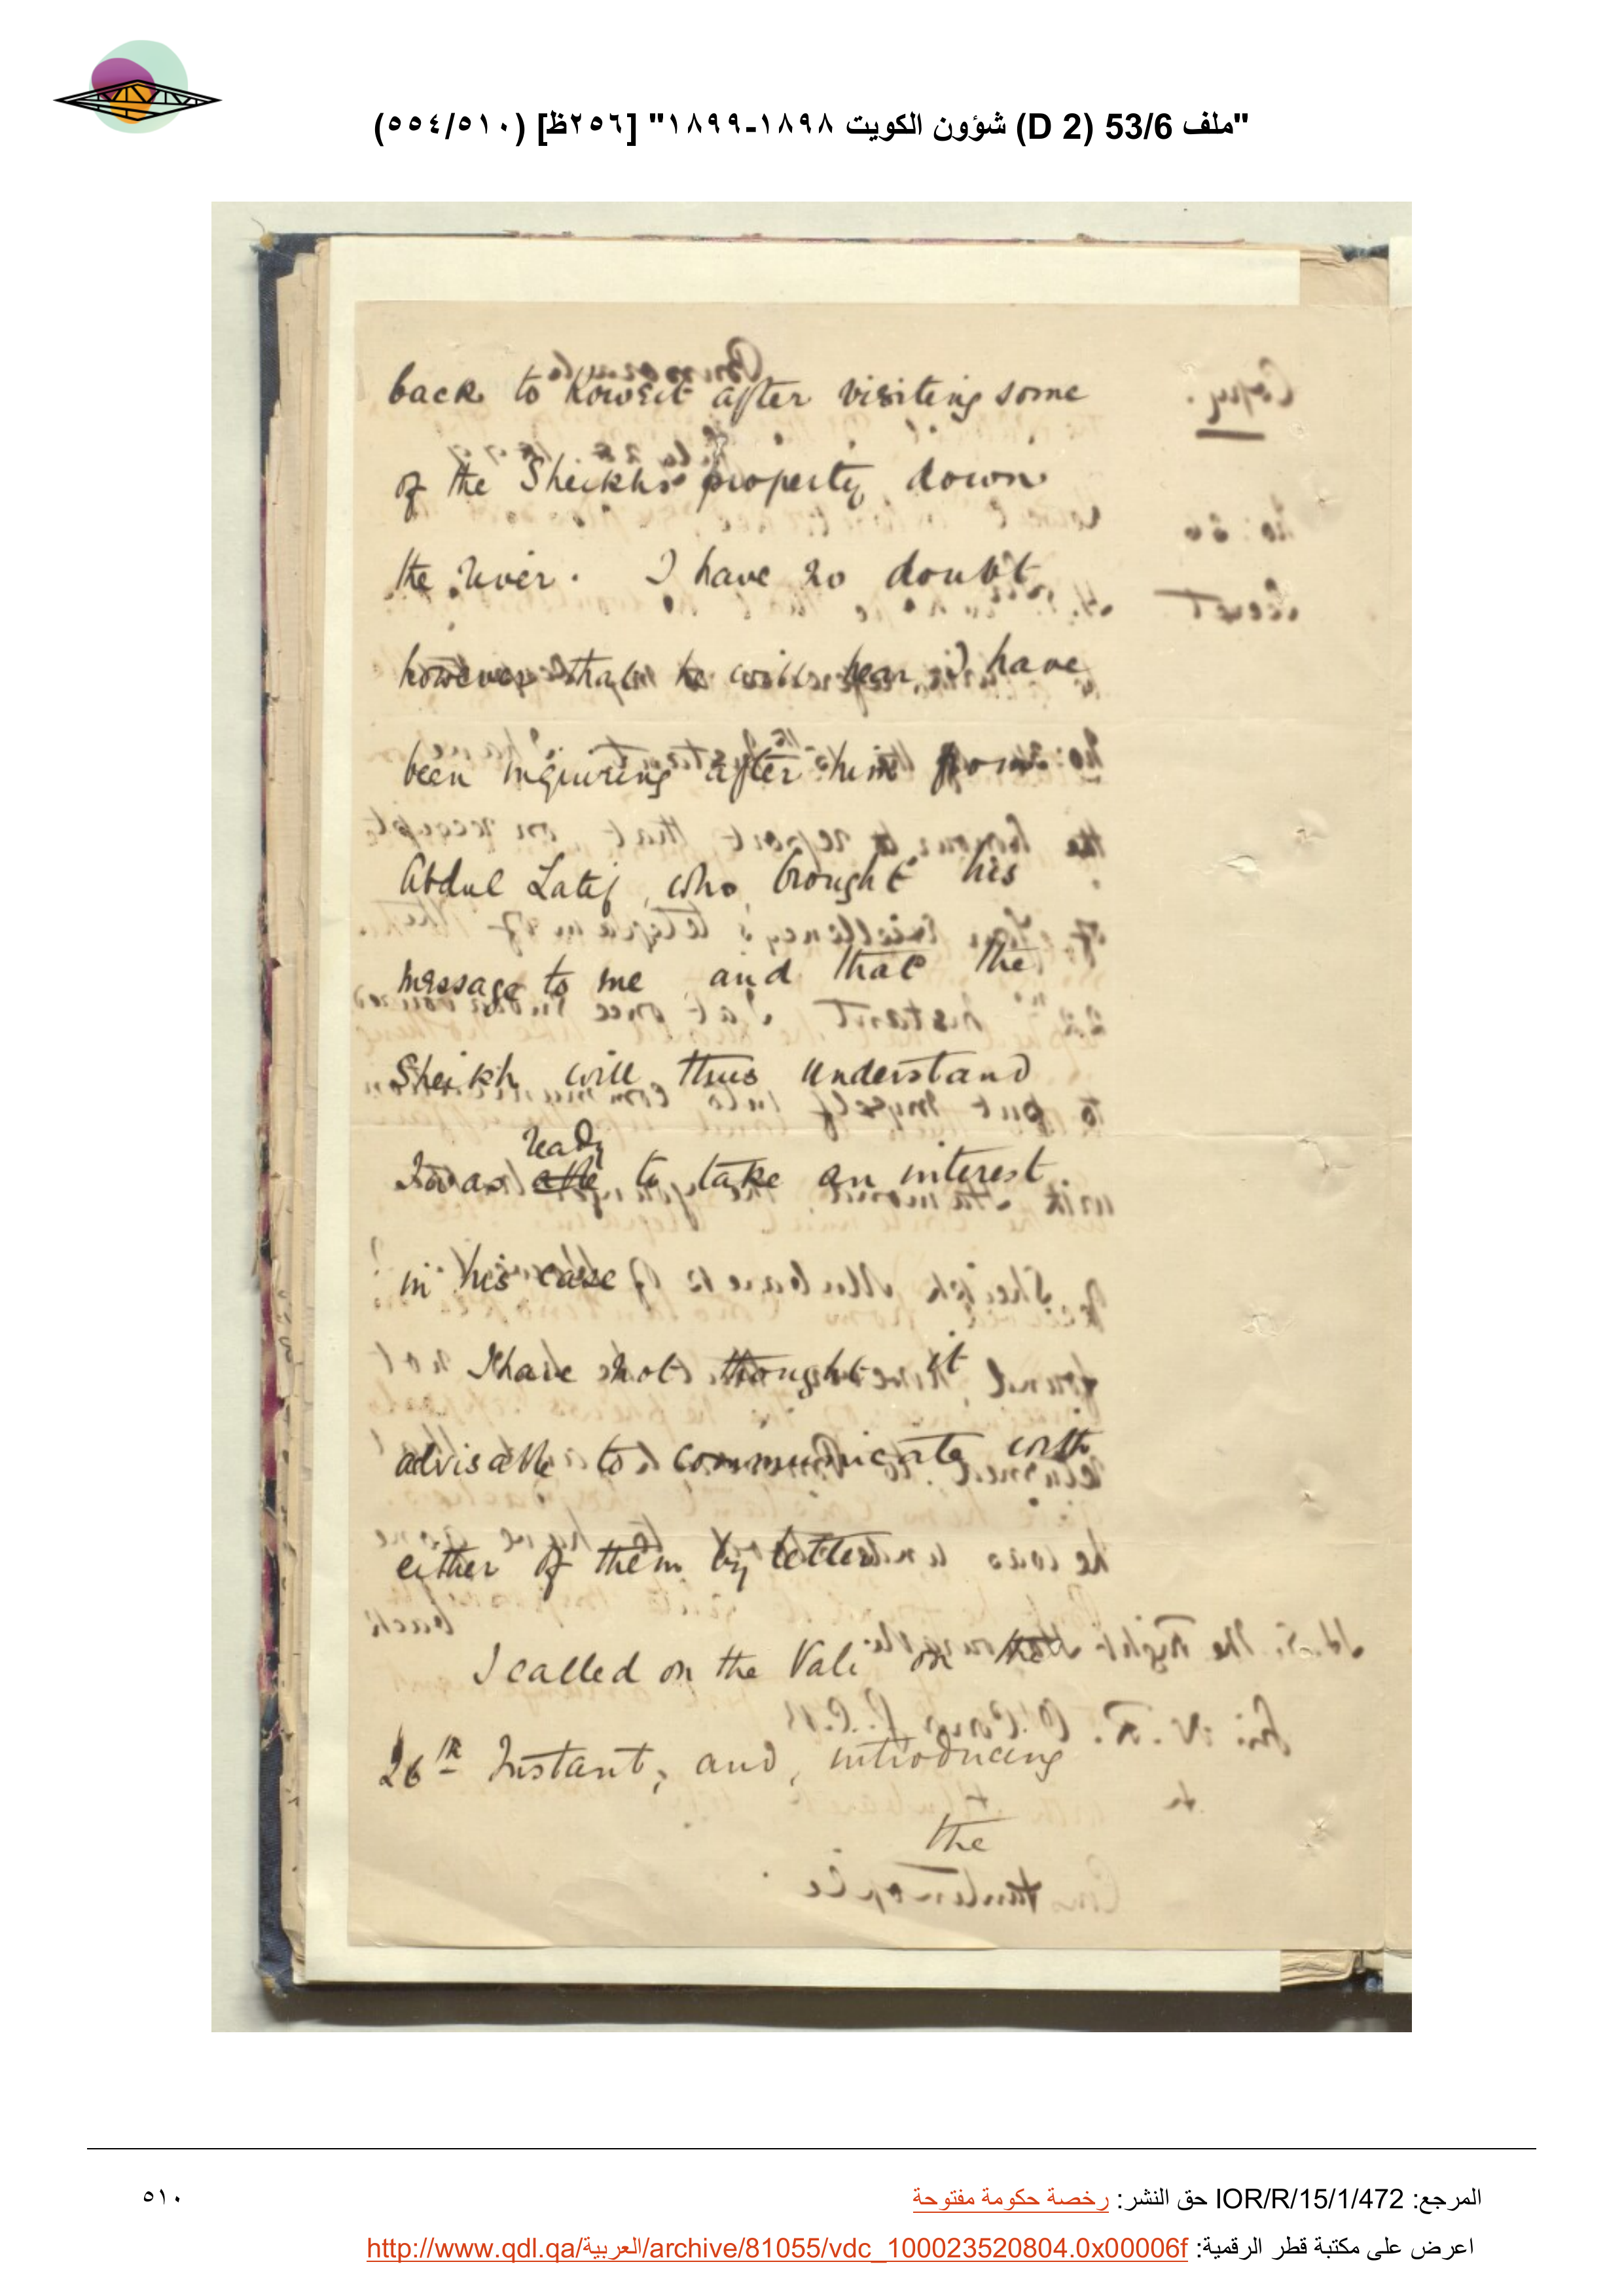 "ملف 53/6 (D 2) شؤون الكويت ١٨٩٨-١٨٩٩" [٢٥٦ظ] (٥٥٤/٥١٠)
back to Koweit after visiting some
of the Sheikhs property down
the river. I have no doubt
however that he will hear I have
been inquiring after him from
Abdul Latif, who brought his
message to me and that the
Sheikh will thus understand
ready
I was able to take an interest
in his case
I have not thought it
advisable to communicate with
either of them by letter
I called on the Vali on the
26th Instant, and, introducing
the
المرجع: IOR/R/15/1/472 حق النشر: رخصة حكومة مفتوحة
٥١٠
اعرض على مكتبة قطر الرقمية: http://www.qdl.qa/العربية/archive/81055/vdc_100023520804.0x00006f